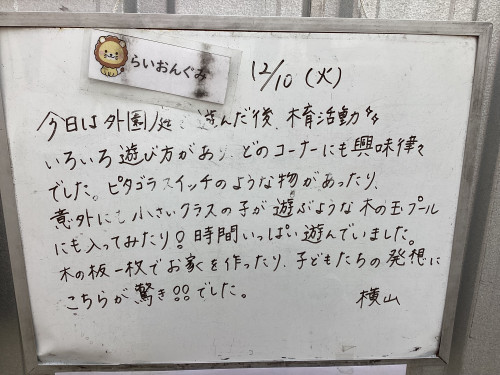 らいおんぐみ
12/10 (火)
今日は外園庭で遊んだ後、木育活動♪♪
いろいろ遊び方があり、どのコーナーにも興味津々
でした。ピタゴラスイッチのような物があったり、
意外にも小さいクラスの子が遊ぶような木の玉プール
にも入ってみたり!時間いっぱい遊んでいました。
木の板一枚でお家を作ったり、子どもたちの発想に
こちらが驚き!!でした。
横山